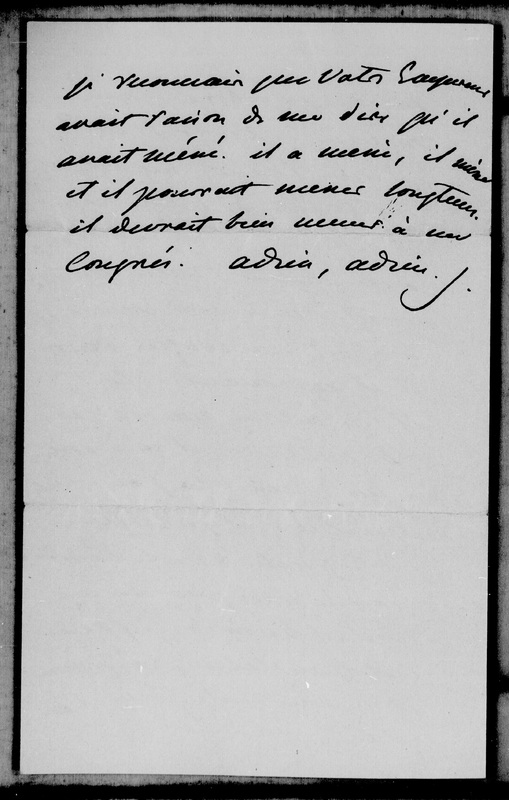 je reconnais que Votre
avait raison de me dire qu'il
avait mené. il a mené, il mène
et il pourrait mener longtems.
il devrait bien mener à un
Congrès. adieu, adieu.